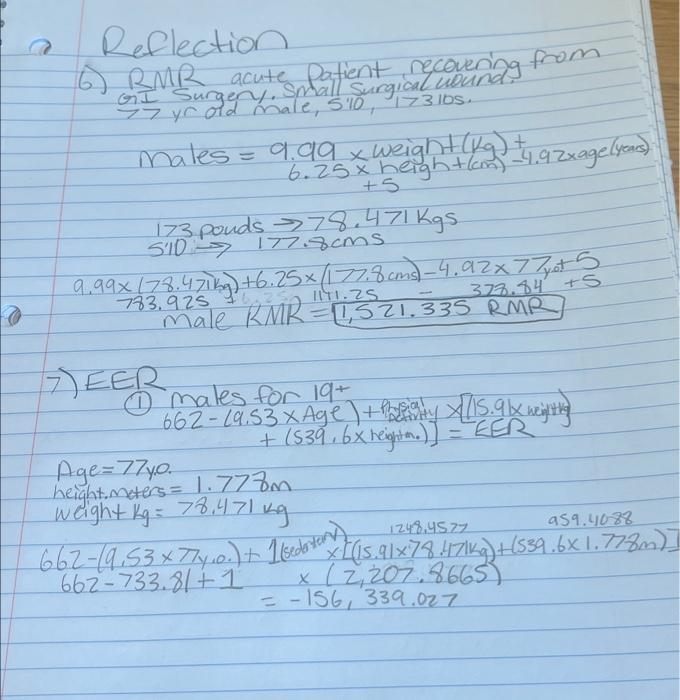 Reflection
6) RMR acute Patient recovering from
GI Surgery. Small Surgical wound.
77 yr old male, 5'10, 173 lbs.
males = 9.99 x weight (kg) +
6.25 x height (cm) - 4.92 x age (years)
+5
173 pouds → 78.471 Kgs
5'10 → 177.8cms
9.99 x (78.471kg) + 6.25 x (177.8cms) - 4.92 x 77yo + 5
783.925 + 1111.25 - 378.84 +5
male RMR = 1,521.335 RMR
7) EER
① males for 19+
662 - (9.53 x Age) + Physical Activity x [(15.91 x weight kg)
+ (539.6 x height m.)] = EER
Age = 77y.o.
height.meters = 1.778m
weight kg = 78.471 kg
1248.4577 959.4088
662 - (9.53 x 77y.o.) + 1(sedatary) x [(15.91 x 78.471kg) + (539.6 x 1.778m)]
662 - 733.81 + 1 x (2,207.8665)
= -156,339.027